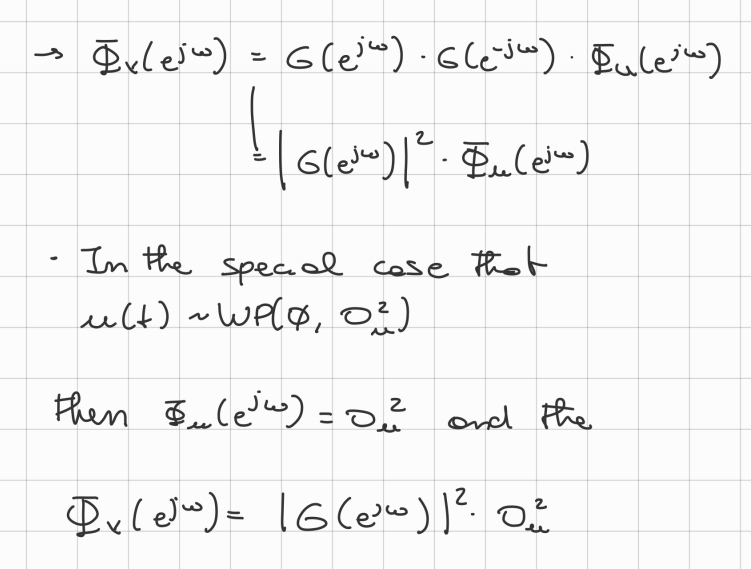 → Φ_v(e^{jω}) = G(e^{jω}) · G(e^{-jω}) · Φ_u(e^{jω})
= |G(e^{jω})|² · Φ_u(e^{jω})
· In the special case that
u(t) ~ WP(∅, σ_u²)
then Φ_u(e^{jω}) = σ_u² and the
Φ_v(e^{jω}) = |G(e^{jω})|² · σ_u²